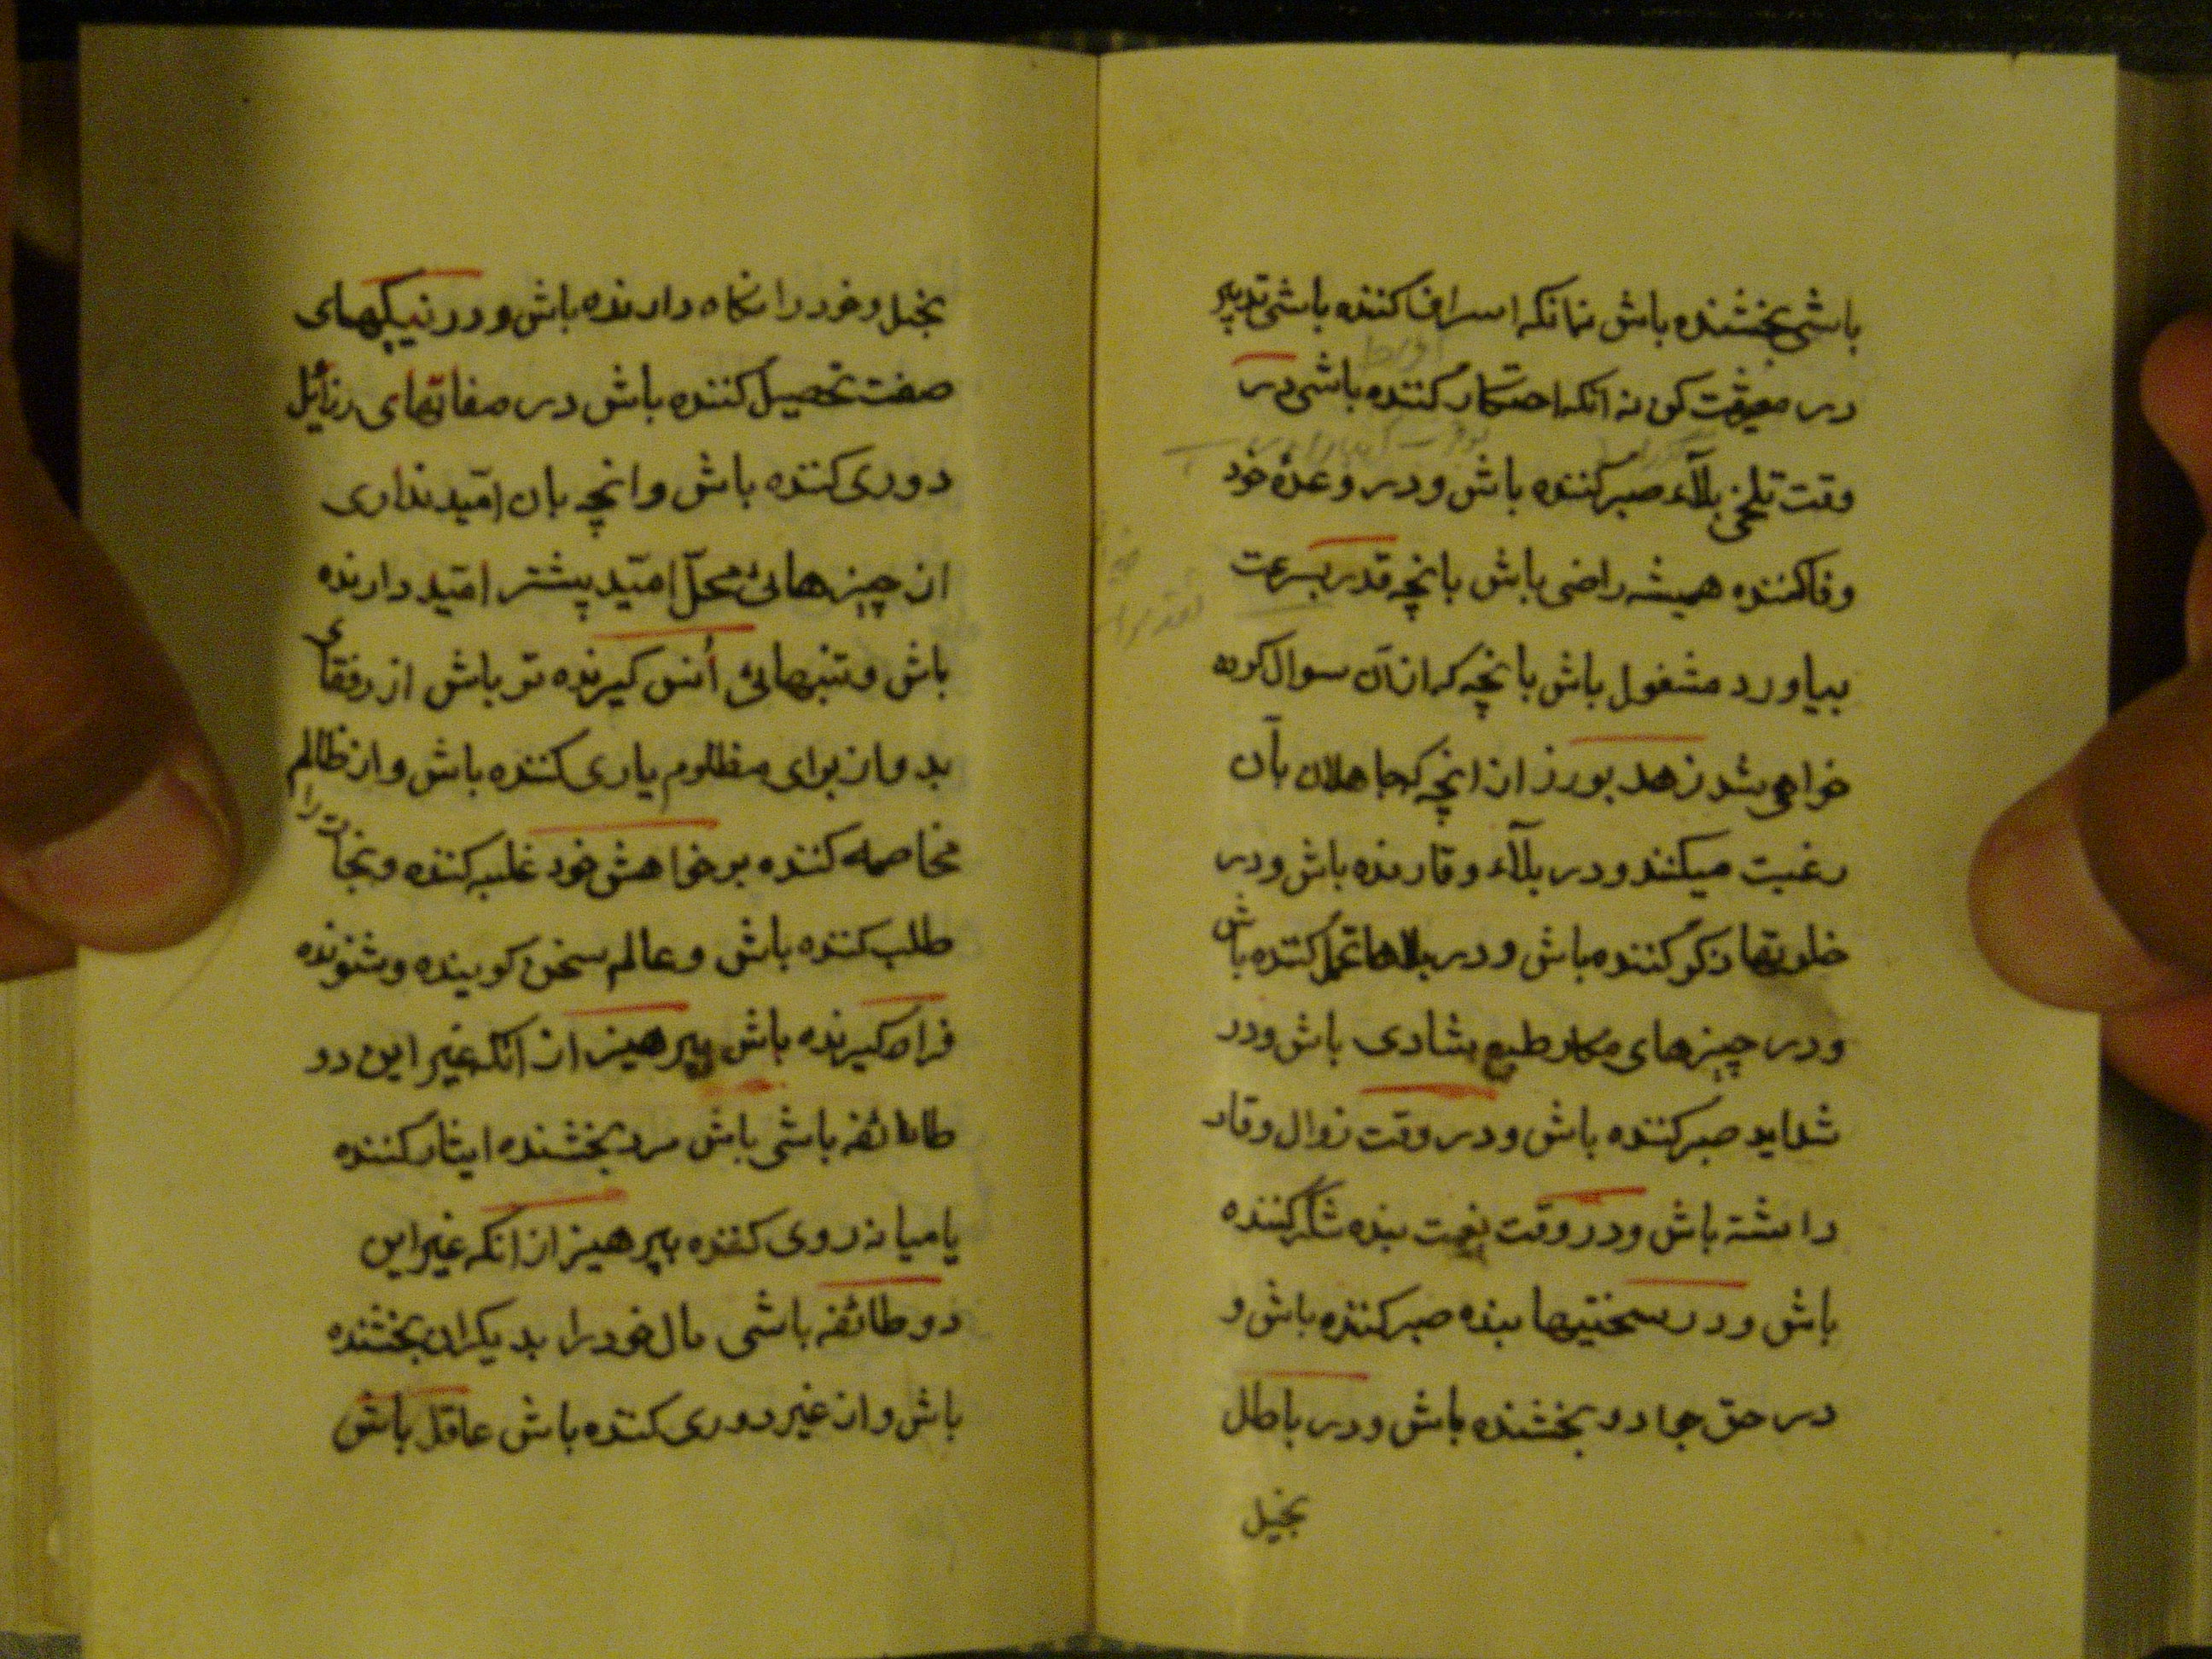 باشی بخشنده باش نمانکه اسراف کننده باشی تدبیر
در معیشت کن نه انکه احتکار کننده باشی در
وقت تلخی بلآء صبر کننده باش و در وعدۀ خود
وفا کننده همیشه راضی باش بانچه قدر بسرعت
بیاورد مشغول باش بانچه که ازان سوال کرده
خواهی شد زهد بورز از انچه که جاهلان بآن
رغبت میکنند و در بلآء وقارنده باش و در
خلوتها ذکر کننده باش و در بلاها تحمل کننده باش
و در چیزهای مکار طبع بشادی باش و در
شداید صبر کننده باش و در وقت زوال وقار
داشته باش و در وقت نعمت بنده شکر کننده
باش و در سختیها بنده صبر کننده باش و
در حق جادو بخشنده باش و در باطل
بخیل
بخیل و خود را نکاه دارنده باش و در نیکیهای
صفت تحصیل کننده باش در صفاتهای رذائل
دوری کننده باش و انچه بان امّید نداری
از چیزهائی محلّ امّید پیشتر امّید دارنده
باش و تنهائی اُنس کیرنده تر باش از رفقای
بد و از برای مظلوم یاری کننده باش و از ظالم
مخاصمه کننده بر خواهش خود غلبه کننده و نجات را
طلب کننده باش و عالم سخن کوینده و شنونده
فراکیرنده باش بپرهیز از انکه غیر این دو
طائفه باشی باش مرد بخشنده ایثار کننده
یا میانه روی کننده بپرهیز از انکه غیر این
دو طائفه باشی مال خود را بدیکران بخشنده
باش و از غیر دوری کننده باش عاقل باش